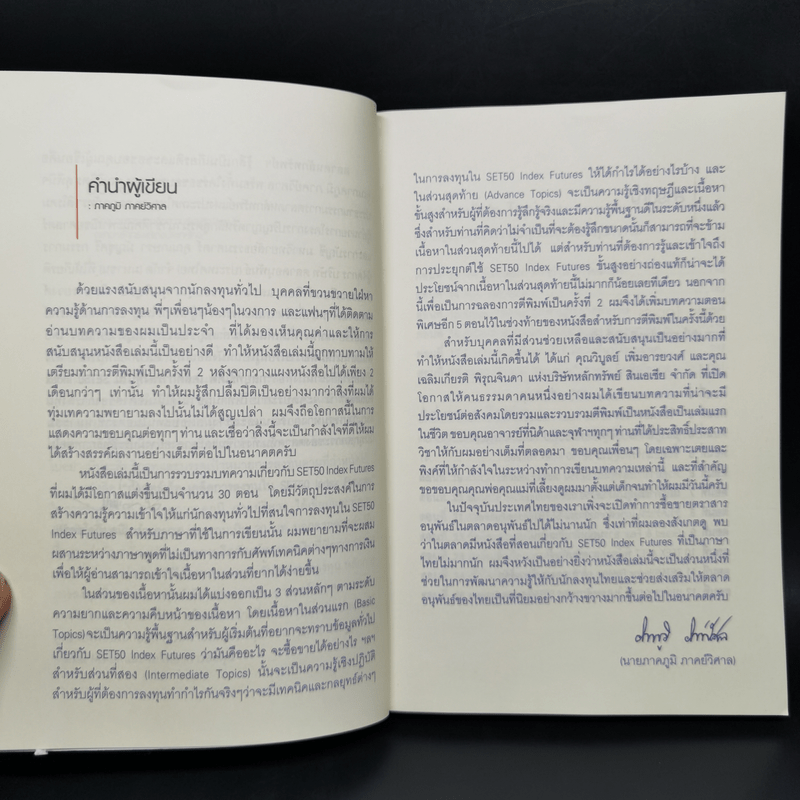 คำนำผู้เขียน
: ภาคภูมิ ภาคย์วิศาล
ด้วยแรงสนับสนุนจากนักลงทุนทั่วไป บุคคลที่ขวนขวายใฝ่หา
ความรู้ด้านการลงทุน พี่ๆเพื่อนๆน้องๆในวงการ และแฟนๆที่ได้ติดตาม
อ่านบทความของผมเป็นประจำ ที่ได้มองเห็นคุณค่าและให้การ
สนับสนุนหนังสือเล่มนี้เป็นอย่างดี ทำให้หนังสือเล่มนี้ถูกทาบทามให้
เตรียมทำการตีพิมพ์เป็นครั้งที่ 2 หลังจากวางแผงหนังสือไปได้เพียง 2
เดือนกว่าๆ เท่านั้น ทำให้ผมรู้สึกปลื้มปิติเป็นอย่างมากว่าสิ่งที่ผมได้
ทุ่มเทความพยายามลงไปนั้นไม่ได้สูญเปล่า ผมจึงถือโอกาสนี้ในการ
แสดงความขอบคุณต่อทุกๆท่าน และเชื่อว่าสิ่งนี้จะเป็นกำลังใจที่ดีให้ผม
ได้สร้างสรรค์ผลงานอย่างเต็มที่ต่อไปในอนาคตครับ
หนังสือเล่มนี้เป็นการรวบรวมบทความเกี่ยวกับ SET50 Index Futures
ที่ผมได้มีโอกาสแต่งขึ้นเป็นจำนวน 30 ตอน โดยมีวัตถุประสงค์ในการ
สร้างความรู้ความเข้าใจให้แก่นักลงทุนทั่วไปที่สนใจการลงทุนใน SET50
Index Futures สำหรับภาษาที่ใช้ในการเขียนนั้น ผมพยายามที่จะผสม
ผสานระหว่างภาษาพูดที่ไม่เป็นทางการกับศัพท์เทคนิคต่างๆทางการเงิน
เพื่อให้ผู้อ่านสามารถเข้าใจเนื้อหาในส่วนที่ยากได้ง่ายขึ้น
ในส่วนของเนื้อหานั้นผมได้แบ่งออกเป็น 3 ส่วนหลักๆ ตามระดับ
ความยากและความคืบหน้าของเนื้อหา โดยเนื้อหาในส่วนแรก (Basic
Topics) จะเป็นความรู้พื้นฐานสำหรับผู้เริ่มต้นที่อยากจะทราบข้อมูลทั่วไป
เกี่ยวกับ SET50 Index Futures ว่ามันคืออะไร จะซื้อขายได้อย่างไร ฯลฯ
สำหรับส่วนที่สอง (Intermediate Topics) นั้นจะเป็นความรู้เชิงปฏิบัติ
สำหรับผู้ที่ต้องการลงทุนทำกำไรกันจริงๆว่าจะมีเทคนิคและกลยุทธ์ต่างๆ
ในการลงทุนใน SET50 Index Futures ให้ได้กำไรได้อย่างไรบ้าง และ
ในส่วนสุดท้าย (Advance Topics) จะเป็นความรู้เชิงทฤษฎีและเนื้อหา
ขั้นสูงสำหรับผู้ที่ต้องการรู้ลึกรู้จริงและมีความรู้พื้นฐานดีในระดับหนึ่งแล้ว
ซึ่งสำหรับท่านที่คิดว่าไม่จำเป็นที่จะต้องรู้ลึกขนาดนั้นก็สามารถที่จะข้าม
เนื้อหาในส่วนสุดท้ายนี้ไปได้ แต่สำหรับท่านที่ต้องการรู้และเข้าใจถึง
การประยุกต์ใช้ SET50 Index Futures ขั้นสูงอย่างถ่องแท้ก็น่าจะได้
ประโยชน์จากเนื้อหาในส่วนสุดท้ายนี้ไม่มากก็น้อยเลยทีเดียว นอกจาก
นี้เพื่อเป็นการฉลองการตีพิมพ์เป็นครั้งที่ 2 ผมจึงได้เพิ่มบทความตอน
พิเศษอีก 5 ตอนไว้ในช่วงท้ายของหนังสือสำหรับการตีพิมพ์ในครั้งนี้ด้วย
สำหรับบุคคลที่มีส่วนช่วยเหลือและสนับสนุนเป็นอย่างมากที่
ทำให้หนังสือเล่มนี้เกิดขึ้นได้ ได้แก่ คุณวิบูลย์ เพิ่มอารยวงศ์ และคุณ
เฉลิมเกียรติ พิรุณจินดา แห่งบริษัทหลักทรัพย์ สินเอเซีย จำกัด ที่เปิด
โอกาสให้คนธรรมดาคนหนึ่งอย่างผมได้เขียนบทความที่น่าจะมี
ประโยชน์ต่อสังคมโดยรวมและรวบรวมตีพิมพ์เป็นหนังสือเป็นเล่มแรก
ในชีวิต ขอบคุณอาจารย์ที่นิด้าและจุฬาฯทุกๆท่านที่ได้ประสิทธิ์ประสาท
วิชาให้กับผมอย่างเต็มที่ตลอดมา ขอบคุณเพื่อนๆ โดยเฉพาะเตยและ
พิงค์ที่ให้กำลังใจในระหว่างทำการเขียนบทความเหล่านี้ และที่สำคัญ
ขอขอบคุณคุณพ่อคุณแม่ที่เลี้ยงดูผมมาตั้งแต่เด็กจนทำให้ผมมีวันนี้ครับ
ในปัจจุบันประเทศไทยของเราเพิ่งจะเปิดทำการซื้อขายตราสาร
อนุพันธ์ในตลาดอนุพันธ์ไปได้ไม่นานนัก ซึ่งเท่าที่ผมลองสังเกตดู พบ
ว่าในตลาดมีหนังสือที่สอนเกี่ยวกับ SET50 Index Futures ที่เป็นภาษา
ไทยไม่มากนัก ผมจึงหวังเป็นอย่างยิ่งว่าหนังสือเล่มนี้จะเป็นส่วนหนึ่งที่
ช่วยในการพัฒนาความรู้ให้กับนักลงทุนไทยและช่วยส่งเสริมให้ตลาด
อนุพันธ์ของไทยเป็นที่นิยมอย่างกว้างขวางมากขึ้นต่อไปในอนาคตครับ
(นายภาคภูมิ ภาคย์วิศาล)